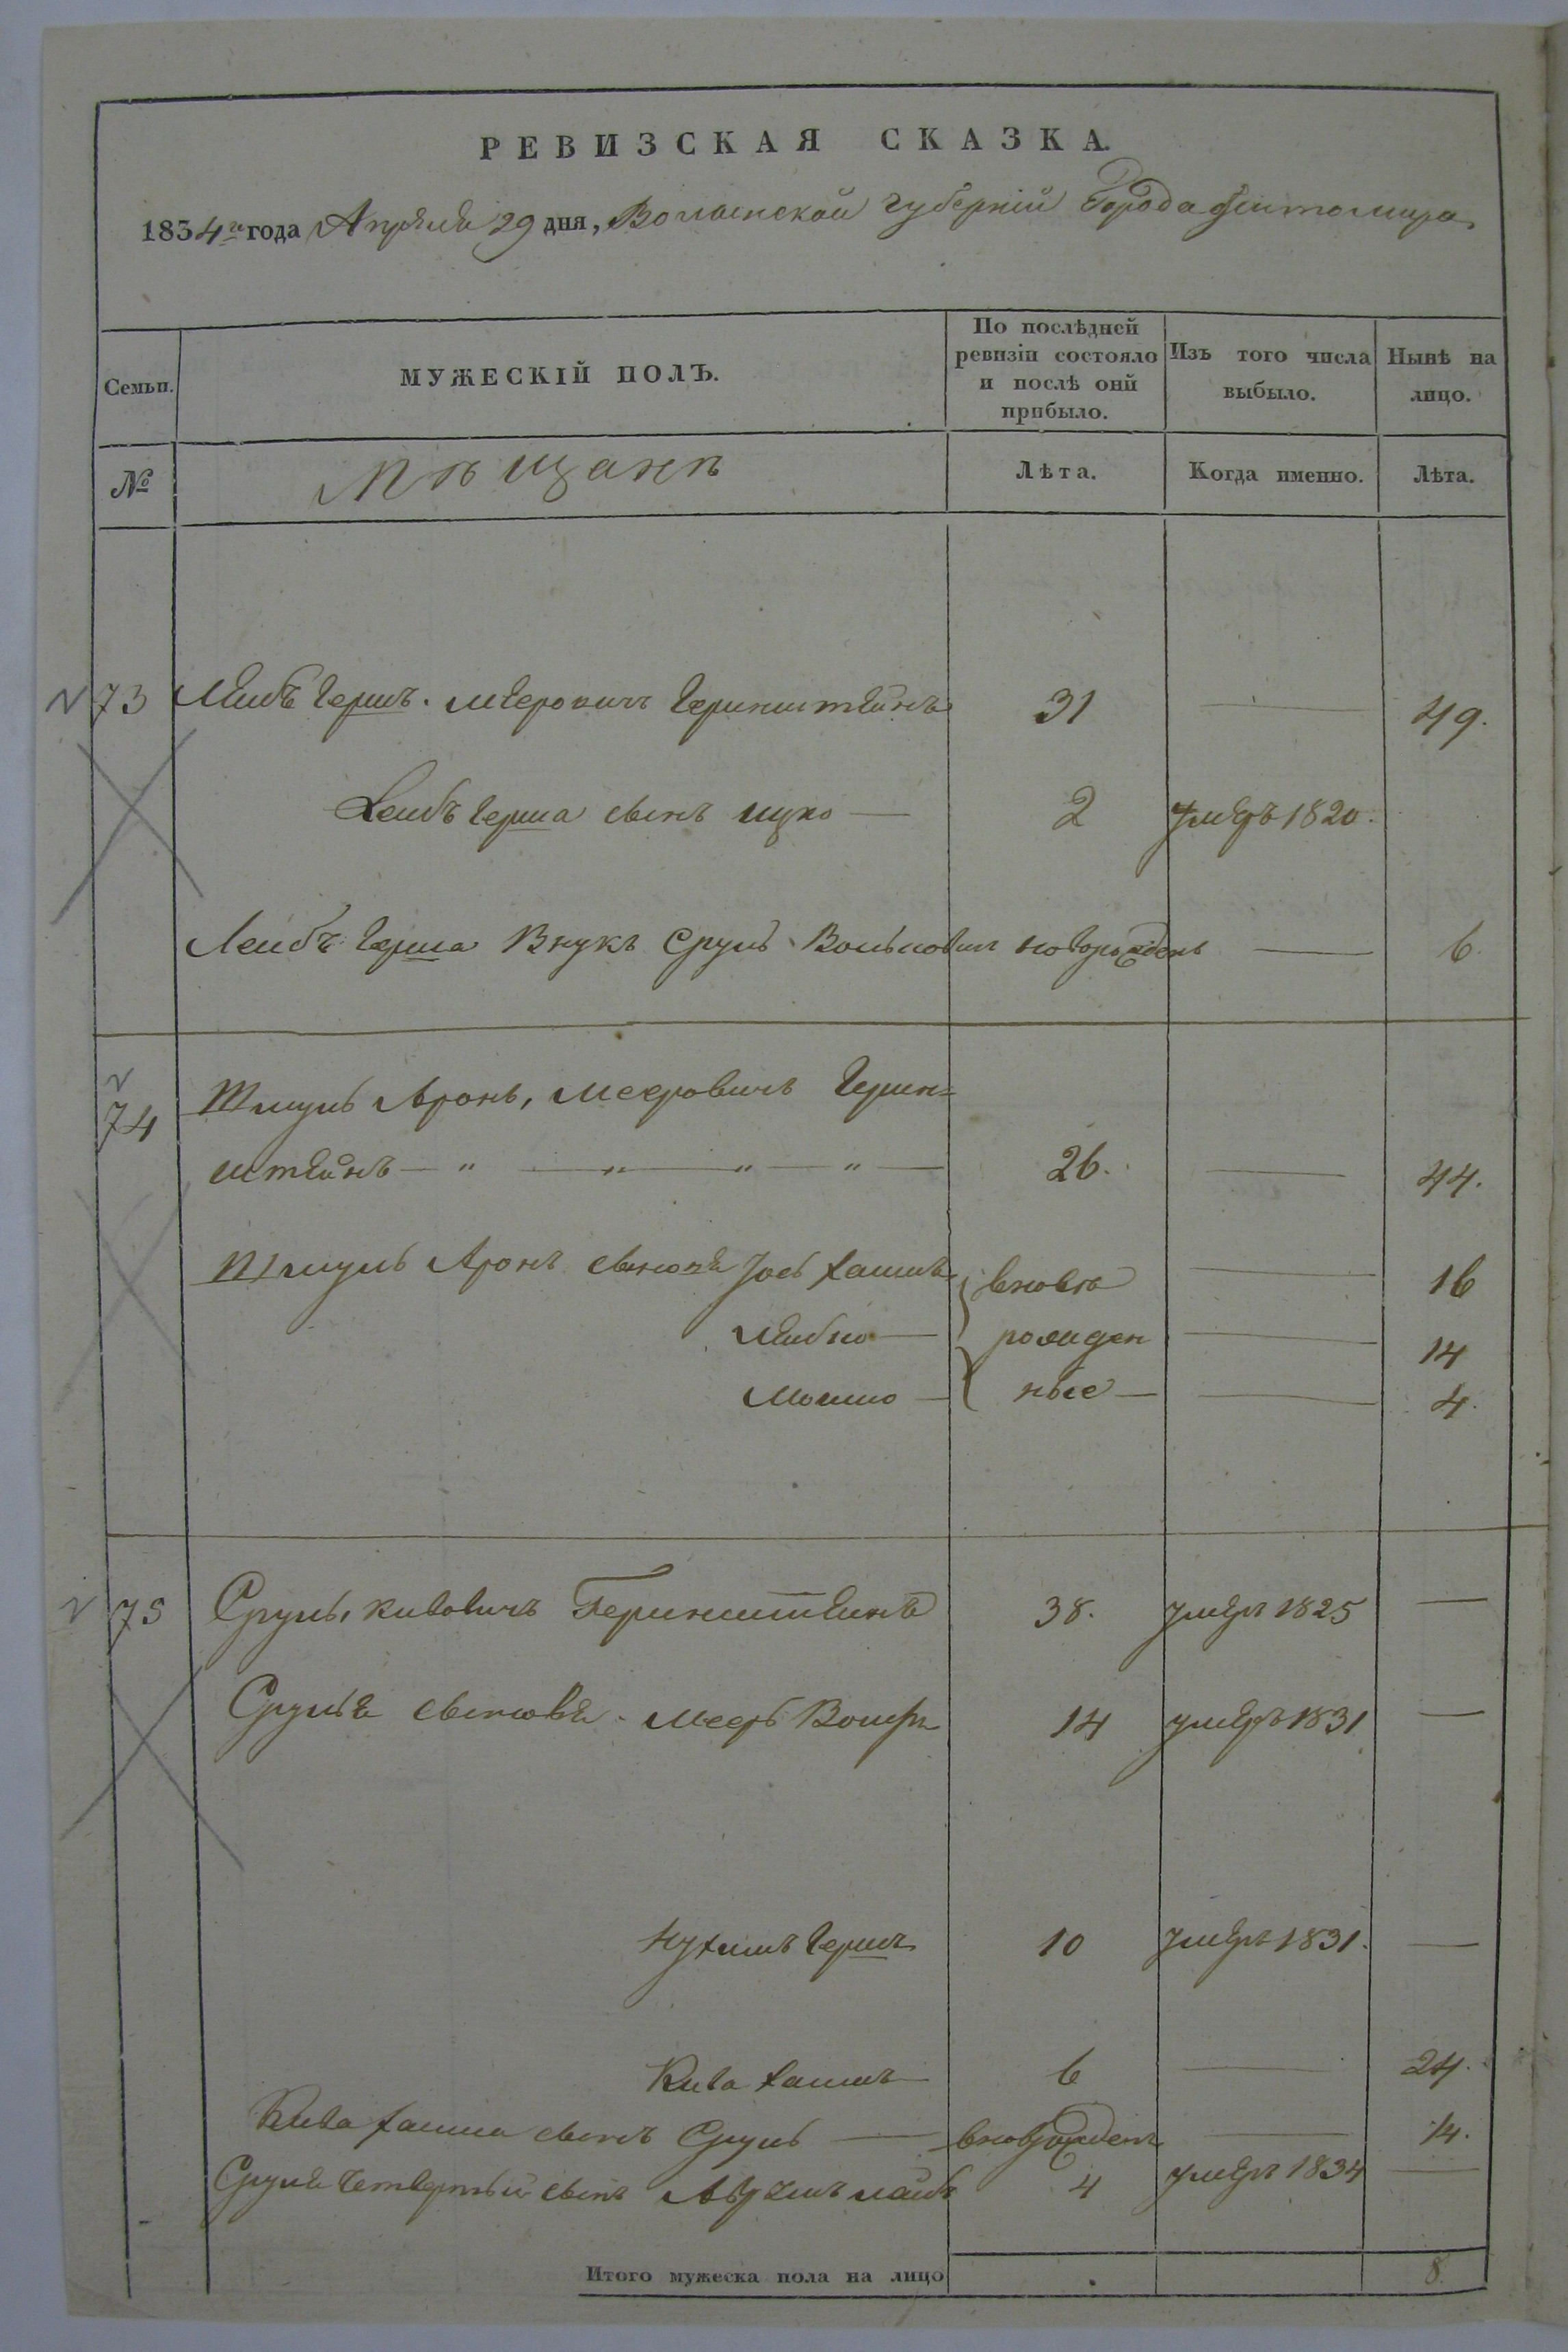 РЕВИЗСКАЯ СКАЗКА.
1834го года Апрѣля 29 дня, Волынской губерніи Города Житомира
Семьи.
МУЖЕСКІЙ ПОЛЪ.
По послѣдней ревизіи состояло и послѣ оной прибыло.
Изъ того числа выбыло.
Нынѣ на лицо.
№
Мѣщанѣ
Лѣта.
Когда именно.
Лѣта.
73 Лейбъ Гершъ Меровичъ Геринштейнъ 31 — 49.
Лейбъ Герша сынъ Ицко — 2 умеръ 1820.
Лейбъ Герша Внукъ Сруль Вольковичъ новорожденъ — 6.
74 Шмуль Аронъ, Мееровичъ Герин=
штейнъ — " — " — " — " — 26. — 44.
Шмуль Аронъ сыновя Іось Хаимъ вновь — 16
Лейбко — рожден — 14
Мошко — ные — — 4.
75 Сруль Кивовичъ Геринштейнъ 38. умеръ 1825 —
Сруля сыновя Мееръ Вольфъ 14 умеръ 1831 —
Нухимъ Гершъ 10 умеръ 1831. —
Кива Хаимъ 6 — 24.
Кива Хаима сынъ Сруль — вноврожденъ — 14.
Сруля четвертый сынъ Аврумъ Лейбъ 4 умеръ 1834 —
Итого мужеска пола на лицо 8.